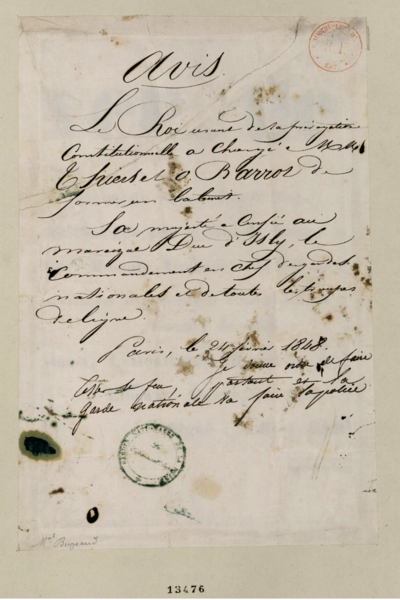 Avis.
Le Roi usant de sa prérogative
Constitutionnelle a Chargé MM.
Thiers et O Barrot de
former un Cabinet.
Sa majesté a Confié au
Duc d'Isly, le
Commandement en Chef des gardes
nationales et de toutes les troupes
de ligne.
Paris, le 24 février 1848.
Je donne ordre de faire
Cesser le feu, partout et la
garde nationale va faire la police
Mal Bugeaud
13476